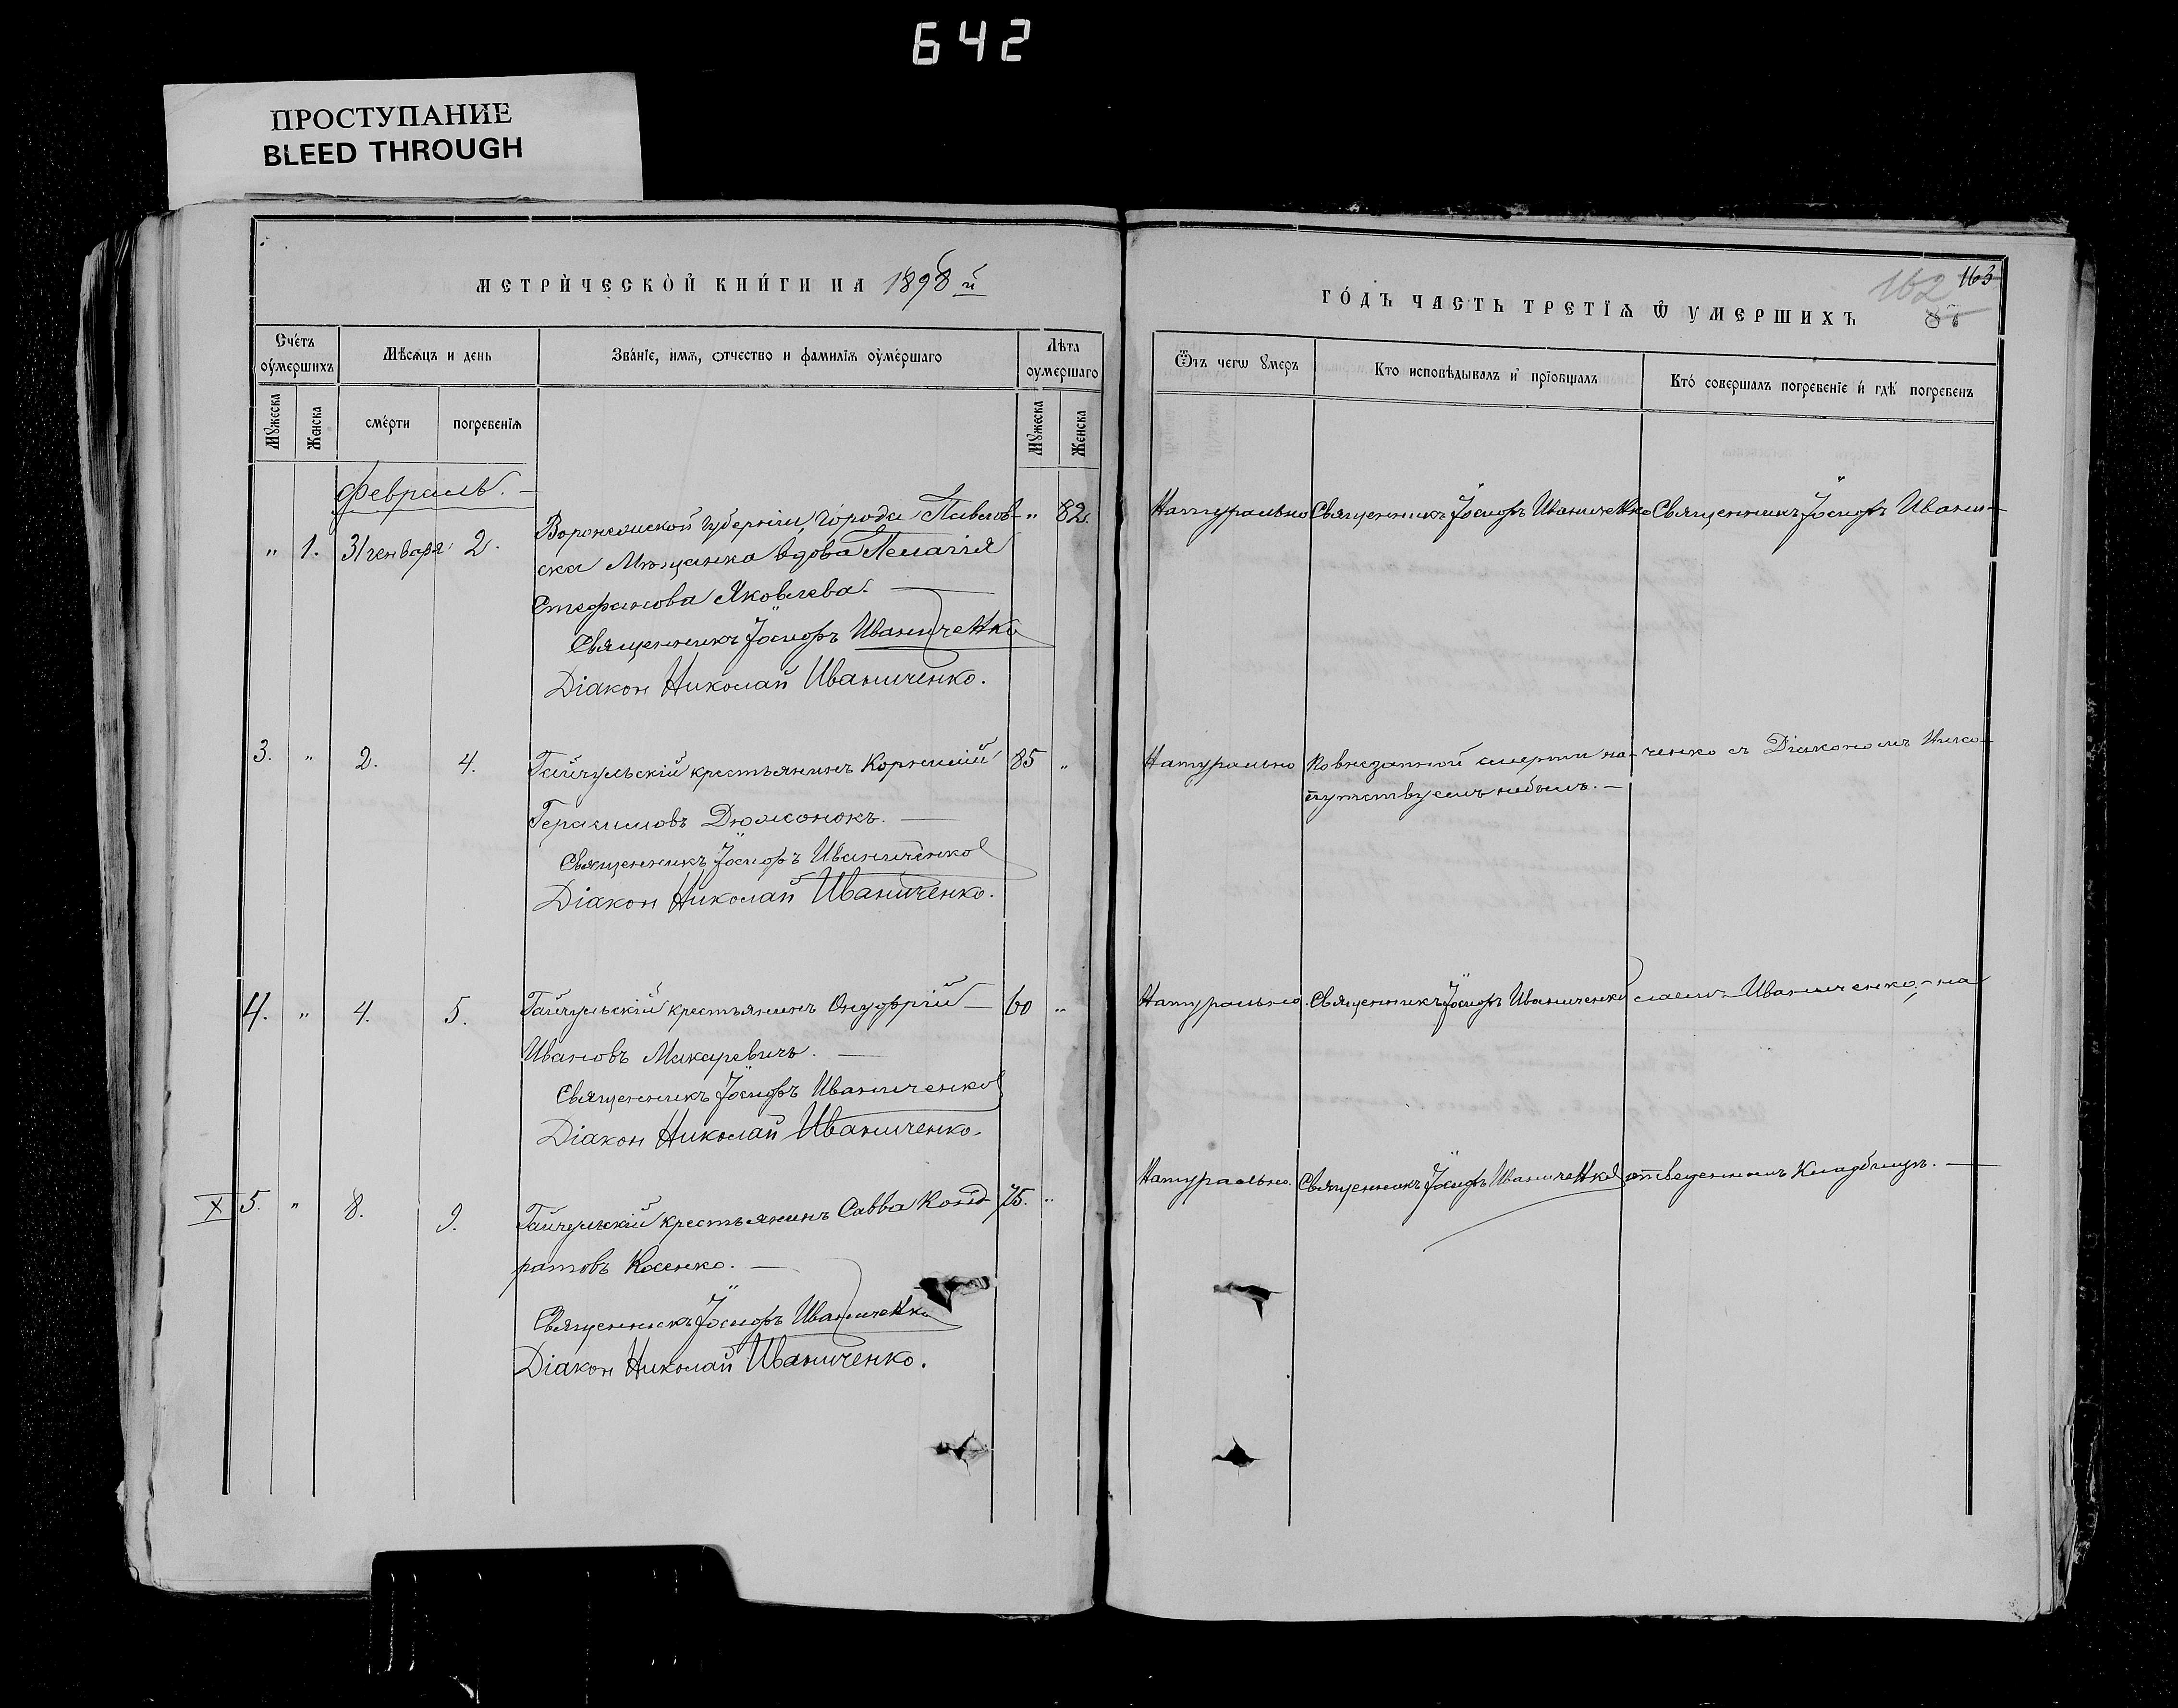 642
ПРОСТУПАНИЕ
BLEED THROUGH
МЕТРИЧЕСКОЙ КНИГИ НА 1898 й
Счетъ оумершихъ
Мѣсяцъ и день
Званіе, имя, отчество и фамилія оумершаго
Лѣта оумершаго
Мужеска
Женска
смерти
погребенія
Мужеска
Женска
Февраль.
" 1. 31 генваря 2. Воронежской губерніи, города Павлов- " 82.
ска Мѣщанка вдова Пелагія
Стефанова Яковлева.
Священникъ Іосифъ Иваниченко
Діакон Николай Иваниченко.
3. " 2. 4. Гайчульскій крестьянинъ Корнилій 85 "
Герасимовъ Дюжонокъ.
Священникъ Іосифъ Иваниченко
Діакон Николай Иваниченко.
4. " 4. 5. Гайчульскій крестьянинъ Онуфрій 60 "
Ивановъ Макаревичъ.
Священникъ Іосифъ Иваниченко
Діакон Николай Иваниченко.
X 5. " 8. 9. Гайчульскій крестьянинъ Савва Конд- 75. "
ратовъ Косенко.
Священникъ Іосифъ Иваниченко
Діакон Николай Иваниченко.
162 163
ГОДЪ ЧАСТЬ ТРЕТІЯ Ѡ УМЕРШИХЪ
Ѿтъ чегѡ умеръ
Кто исповѣдывалъ и пріобщалъ
Кто совершалъ погребеніе и гдѣ погребенъ
Натурально Священникъ Іосифъ Иваниченко Священникъ Іосифъ Ивани-
Натурально По внезапной смерти на- ченко съ Діакономъ Нико-
путствуемъ небылъ.
Натурально. Священникъ Іосифъ Иваниченко лаемъ Иваниченко, - на
Натурально. Священникъ Іосифъ Иваниченко отведенномъ Кладбищѣ.